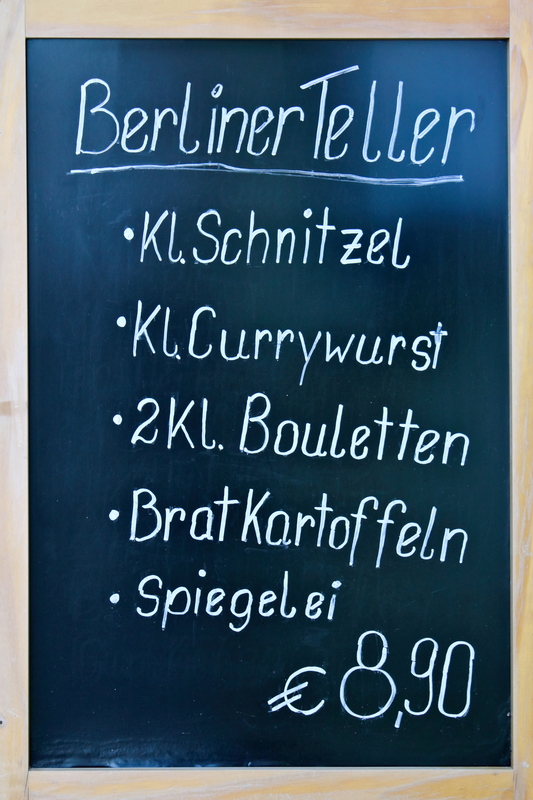 Berliner Teller
• Kl. Schnitzel
• Kl. Currywurst
• 2 Kl. Bouletten
• Bratkartoffeln
• Spiegelei
€ 8,90